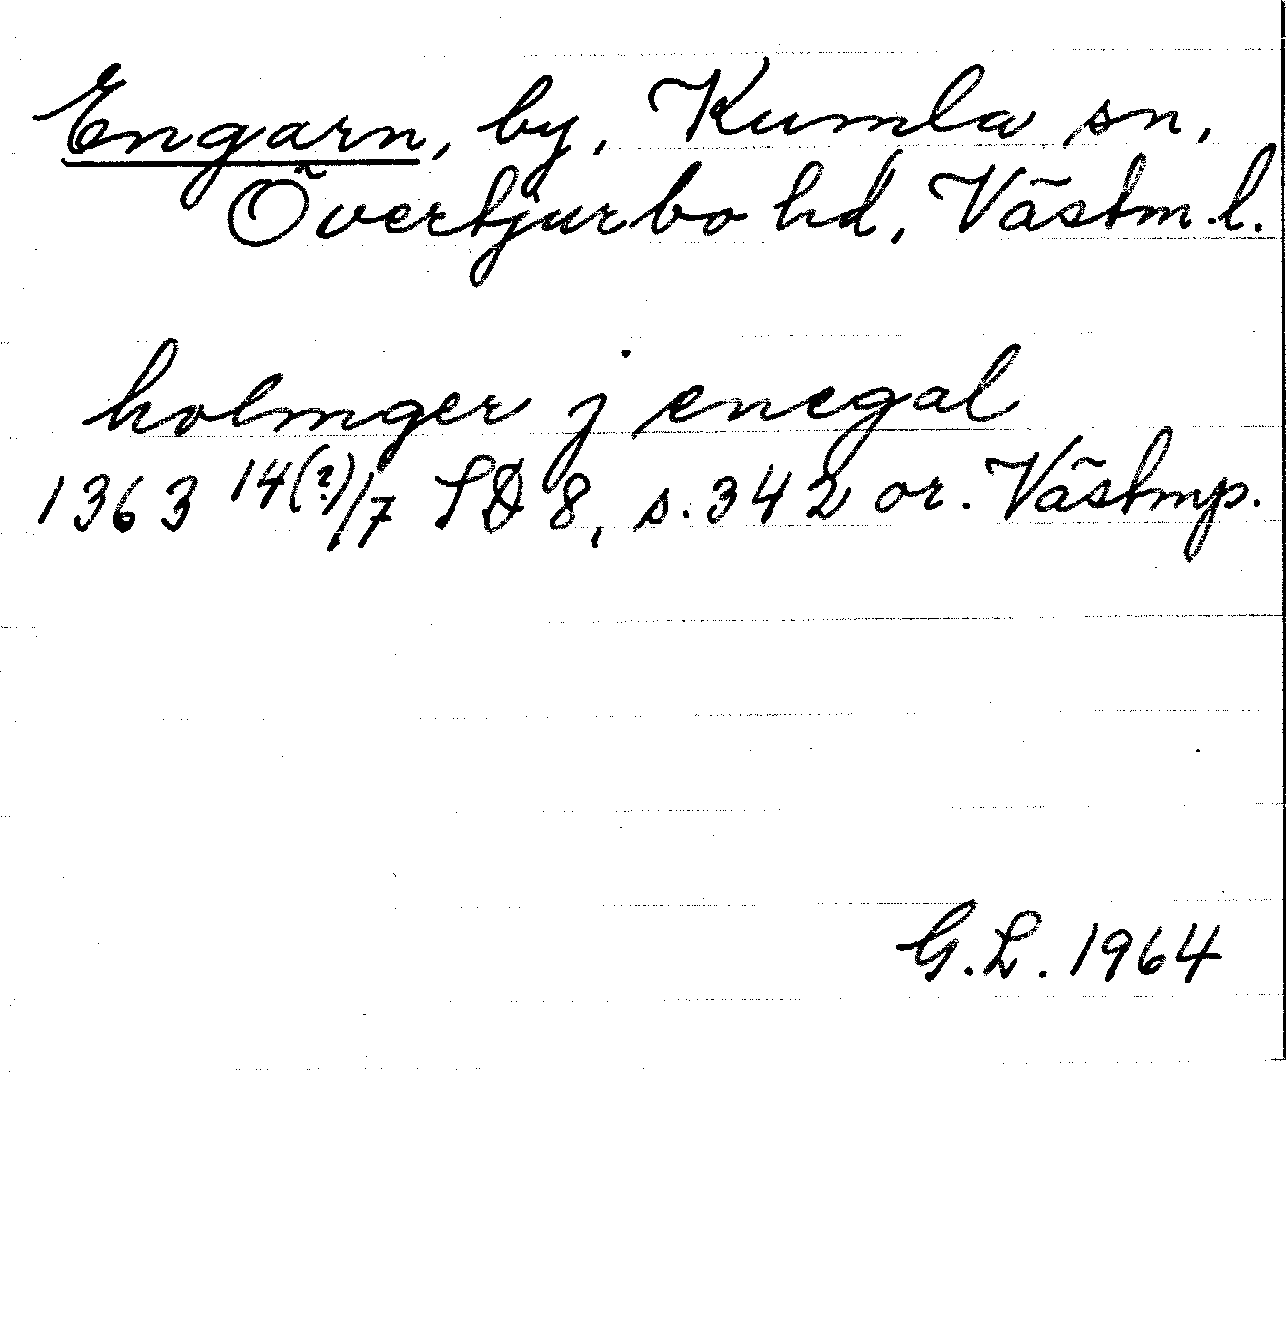 Engarn, by, Kumla sn,
Övertjurbo hd, Västm.l.
holmger j enegal
1363 14(?)/7 SD 8, s. 342 or. Västmp.
G.L. 1964